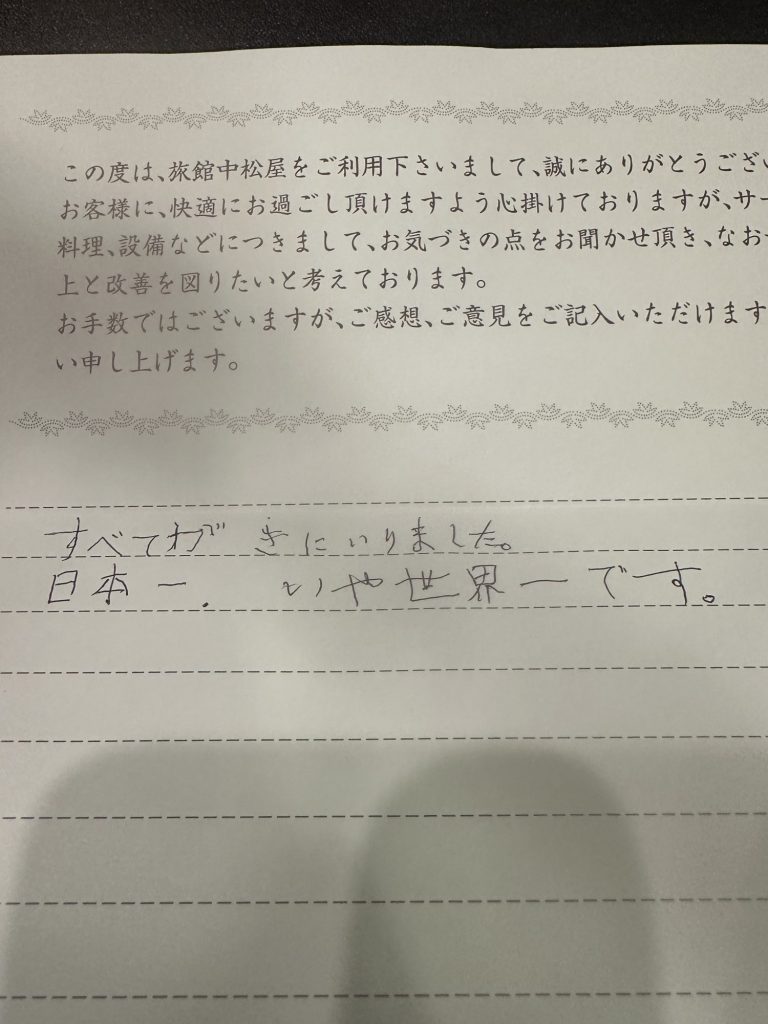 この度は、旅館中松屋をご利用下さいまして、誠にありがとうござい
お客様に、快適にお過ごし頂けますよう心掛けておりますが、サー
料理、設備などにつきまして、お気づきの点をお聞かせ頂き、なお
上と改善を図りたいと考えております。
お手数ではございますが、ご感想、ご意見をご記入いただけます
い申し上げます。
すべてが きにいりました。
日本一. いや世界一です。